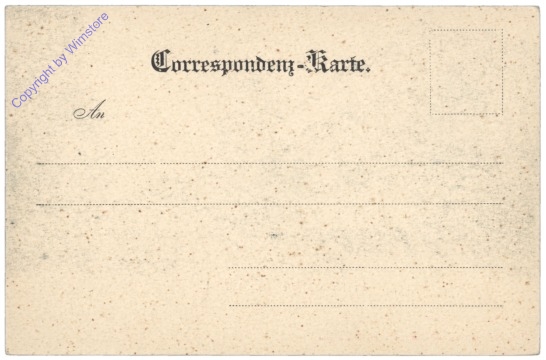 Copyright by Wimstore
Correspondenz-Karte.
An